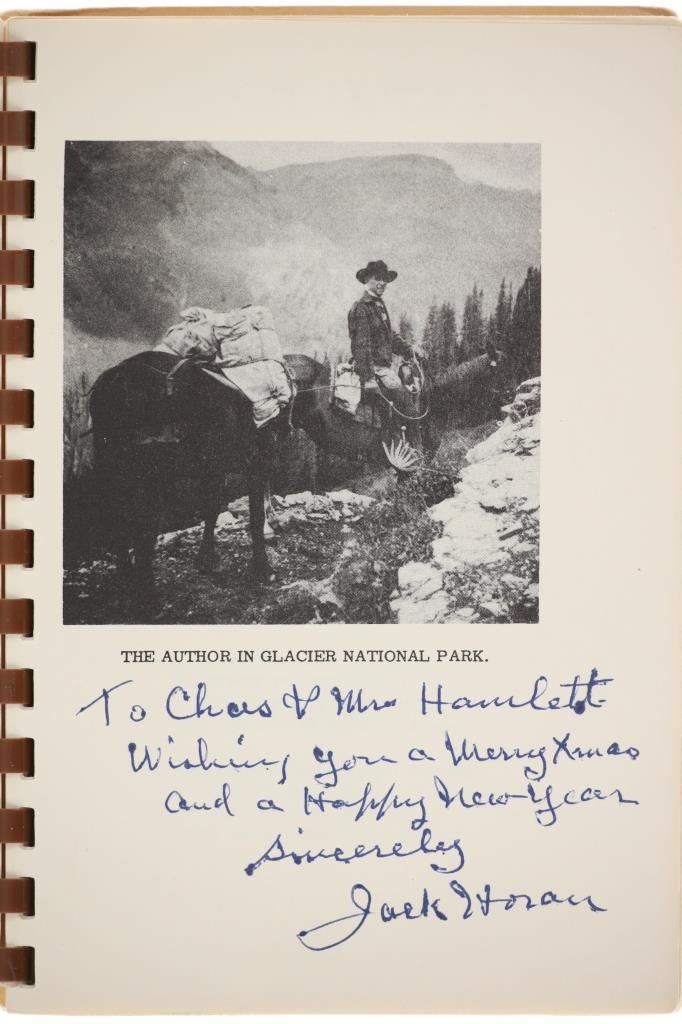 THE AUTHOR IN GLACIER NATIONAL PARK.
To Chas & Mrs Hamlett
Wishing you a Merry Xmas
and a Happy New Year
Sincereley
Jack Horan